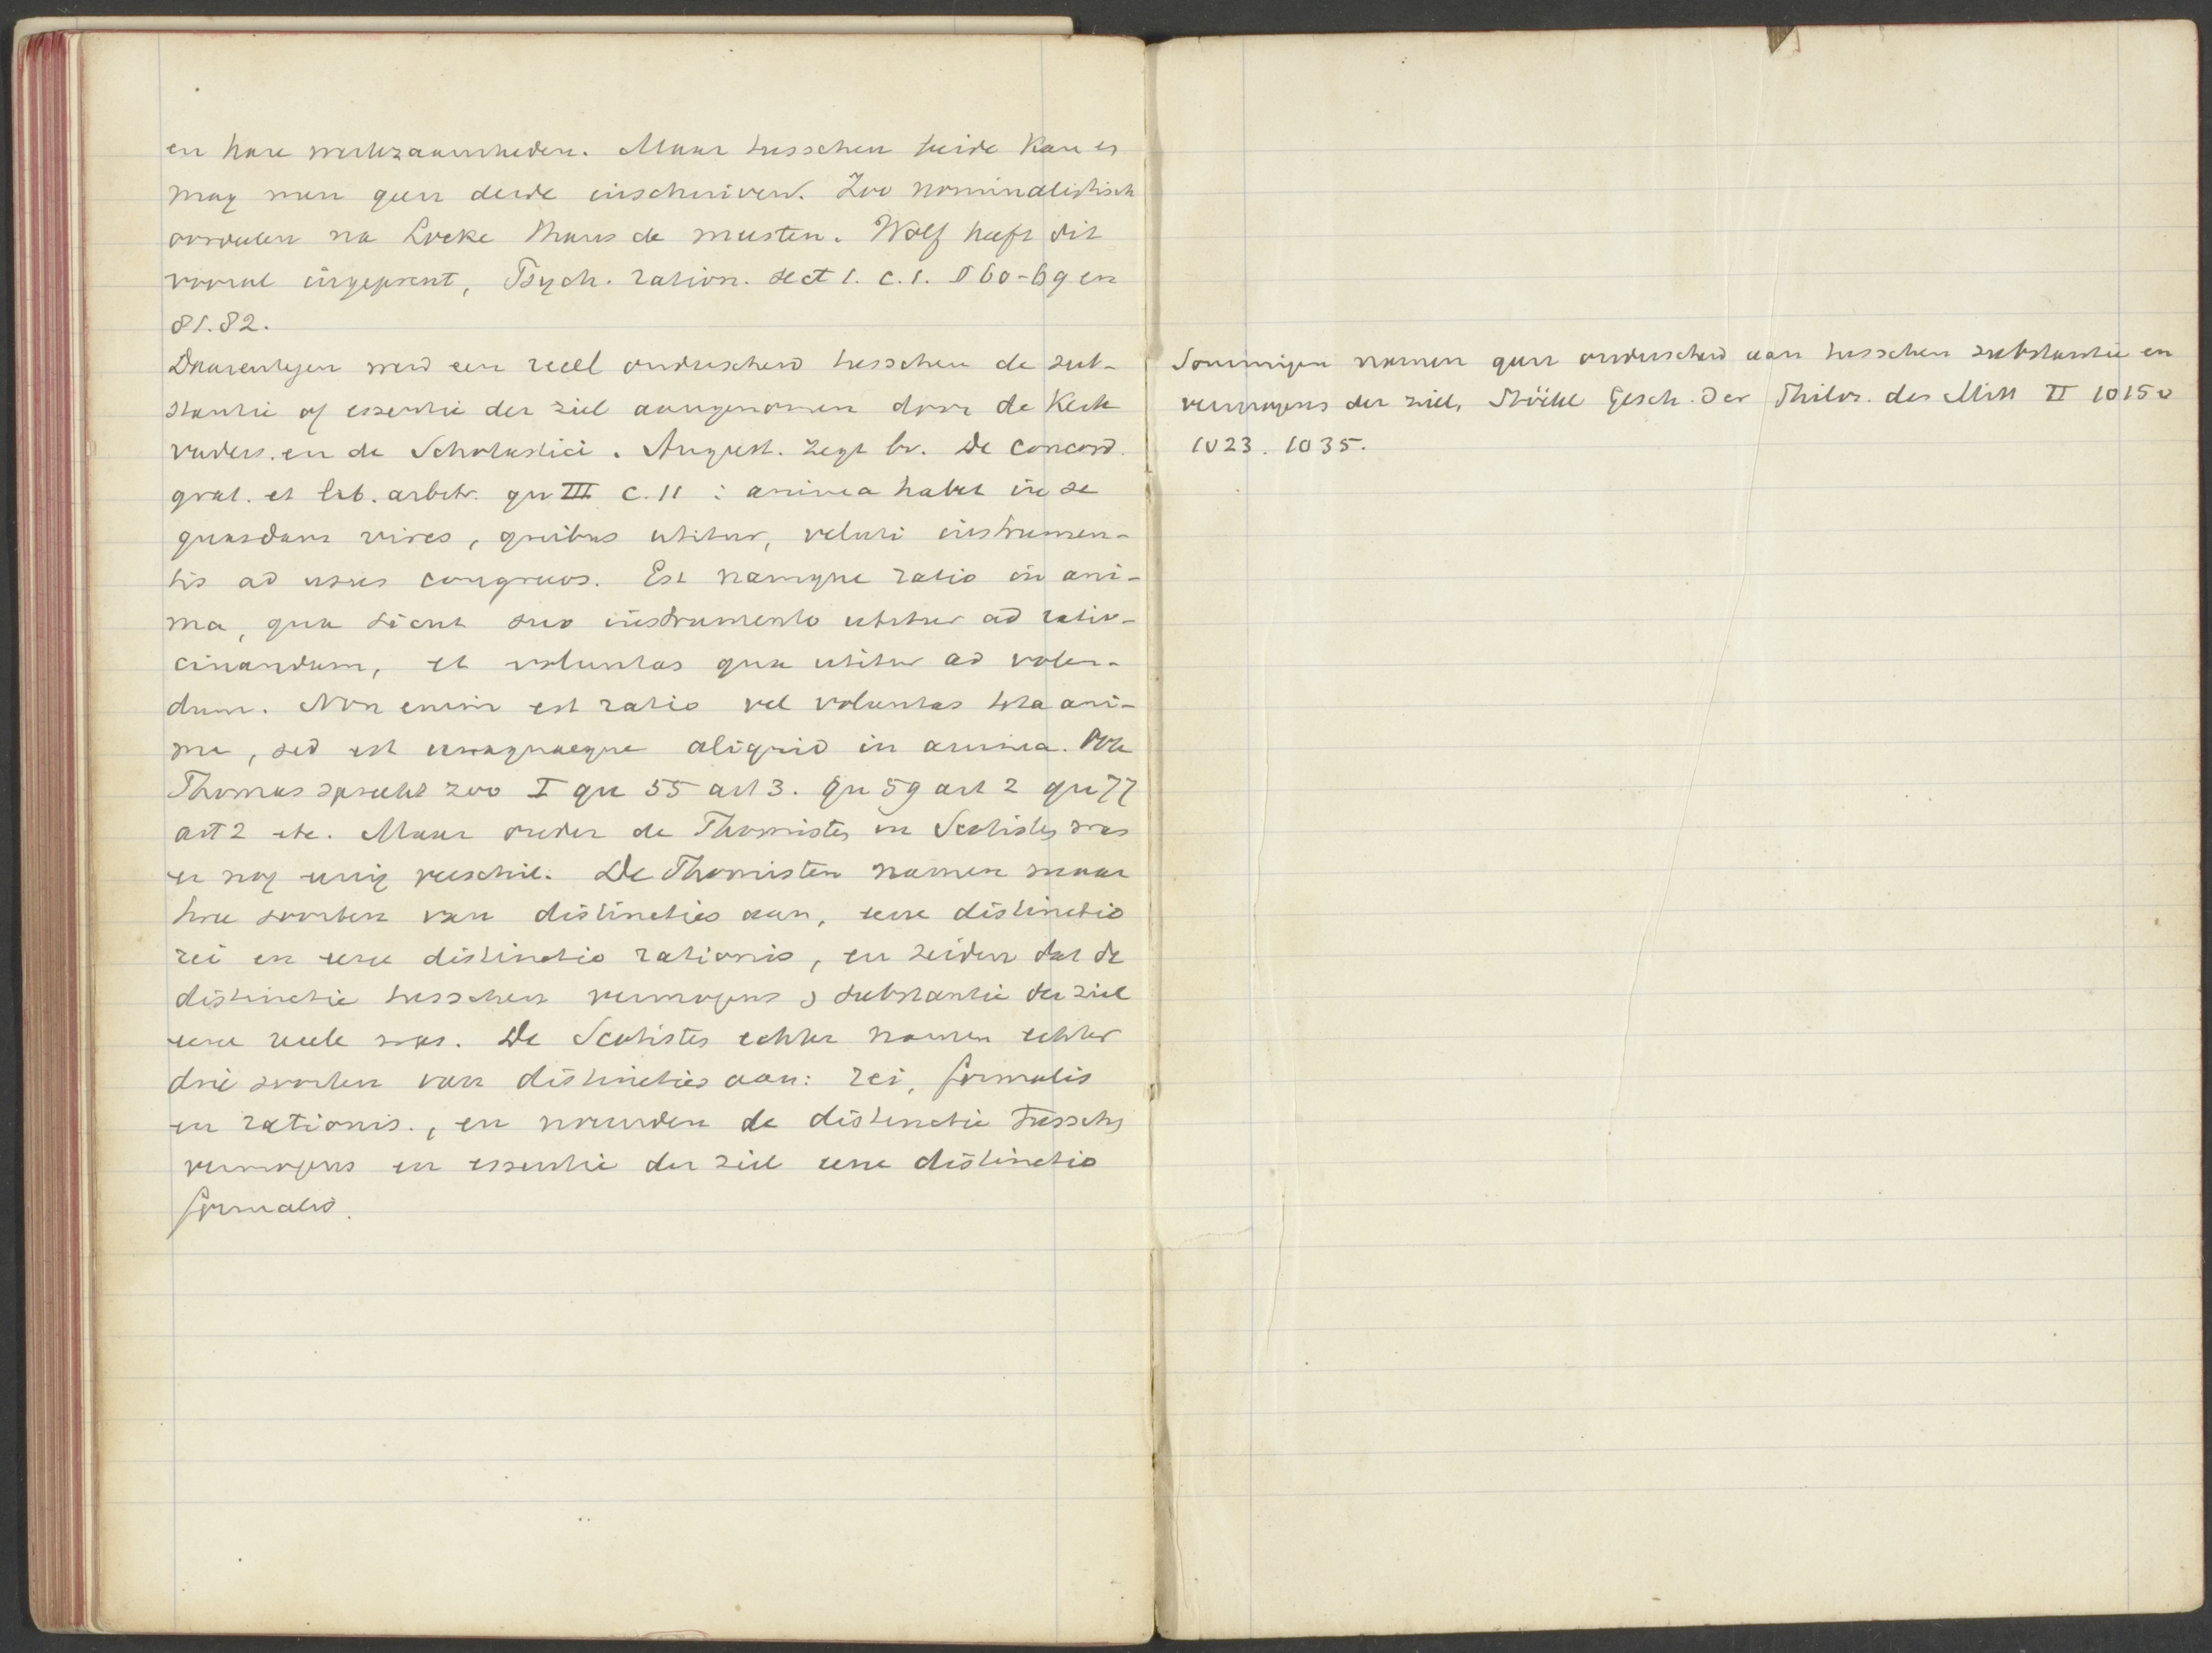 en hare werkzaamheden. Maar tusschen beide kan en
mag men geen derde inschuiven. Zoo nominalistisch
oordeelen na Locke thans de meesten. Wolf heeft dit
vooral ingeprent, Psych. ration. sect 1. c. 1. § 60-69 en
81.82.
Daarentegen werd een reeel onderscheid tusschen de sub-
stantie of essentie der ziel aangenomen door de Kerk
vaders en de Scholastici. August. zegt bv. De concord.
grat. et lib. arbitr. qu III c. 11 : anima habet in se
quasdam vires, quibus utitur, veluti instrumen-
tis ad usus congruos. Est namque ratio in ani-
ma, qua sicut suo instrumento utitur ad ratio-
cinandum, et voluntas qua utitur ad volen-
dum. Non enim est ratio vel voluntas tota ani-
ma, sed est unaquaeque aliquid in anima. Ook
Thomas spreekt zoo I qu 55 art 3. qu 59 art 2 qu 77
art 2 etc. Maar onder de Thomisten en Scotisten was
er nog eenig verschil. De Thomisten namen maar
twee soorten van distincties aan, eene distinctio
rei en eene distinctio rationis, en zeiden dat de
distinctie tusschen vermogens & substantie der ziel
eene reele was. De Scotisten echter namen echter
drie soorten van distincties aan: rei, formalis
en rationis., en noemden de distinctie tusschen
vermogens en essentie der ziel eene distinctio
formalis.
Sommigen namen geen onderscheid aan tusschen substantie en
vermogens der ziel, Stöckl Gesch. der Philos. des Mitt II 1015
1023. 1035.